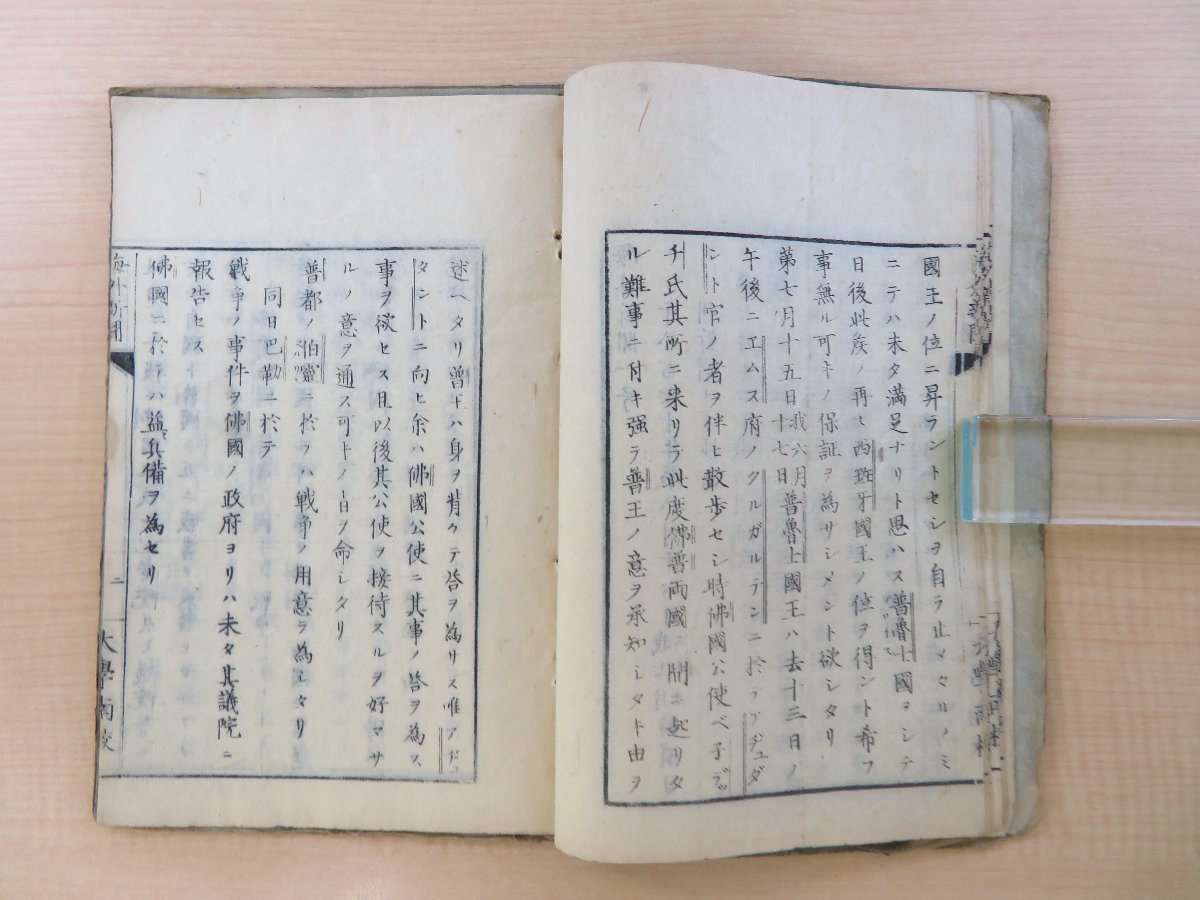 國王ノ位ニ昇ラントセシヲ自ラ止マタルノミ
ニテハ未タ満足ナリト思ハス普魯士國ヲシテ
日後此族ノ再ヒ西班牙國王ノ位ヲ得ント希フ
事無ル可キノ保証ヲ為サシメント欲シタリ
第七月十五日我六月十七日普魯士國王ハ去十三日ノ
午後ニエムス府ノクルガルテンニ於テアヂュダ
ント官ノ者ヲ伴ヒ散歩セシ時佛國公使ベ子デッ
チ氏其所ニ来リテ此度佛普両國ニ間ニ起リタ
ル難事ニ付キ强テ普王ノ意ヲ承知シタト由ヲ
述ヘタリ普王ハ身ヲ背ケテ答ヲ為サス唯アヂュ
タントニ向ヒ余ハ佛國公使ニ其事ノ答ヲ為ス
事ヲ欲セス且以後其公使ヲ接待スルヲ好マサ
ルノ意ヲ通ス可キノ旨ヲ命シタリ
普都ノ伯靈ニ於テハ戦争ノ用意ヲ為シタリ
同日巴勒ニ於テ
戦争ノ事件ヲ佛國ノ政府ヨリハ未タ其議院ニ
報告セス
佛國ニ於テハ益兵備ヲ為セリ
海外新聞
二
大學南校